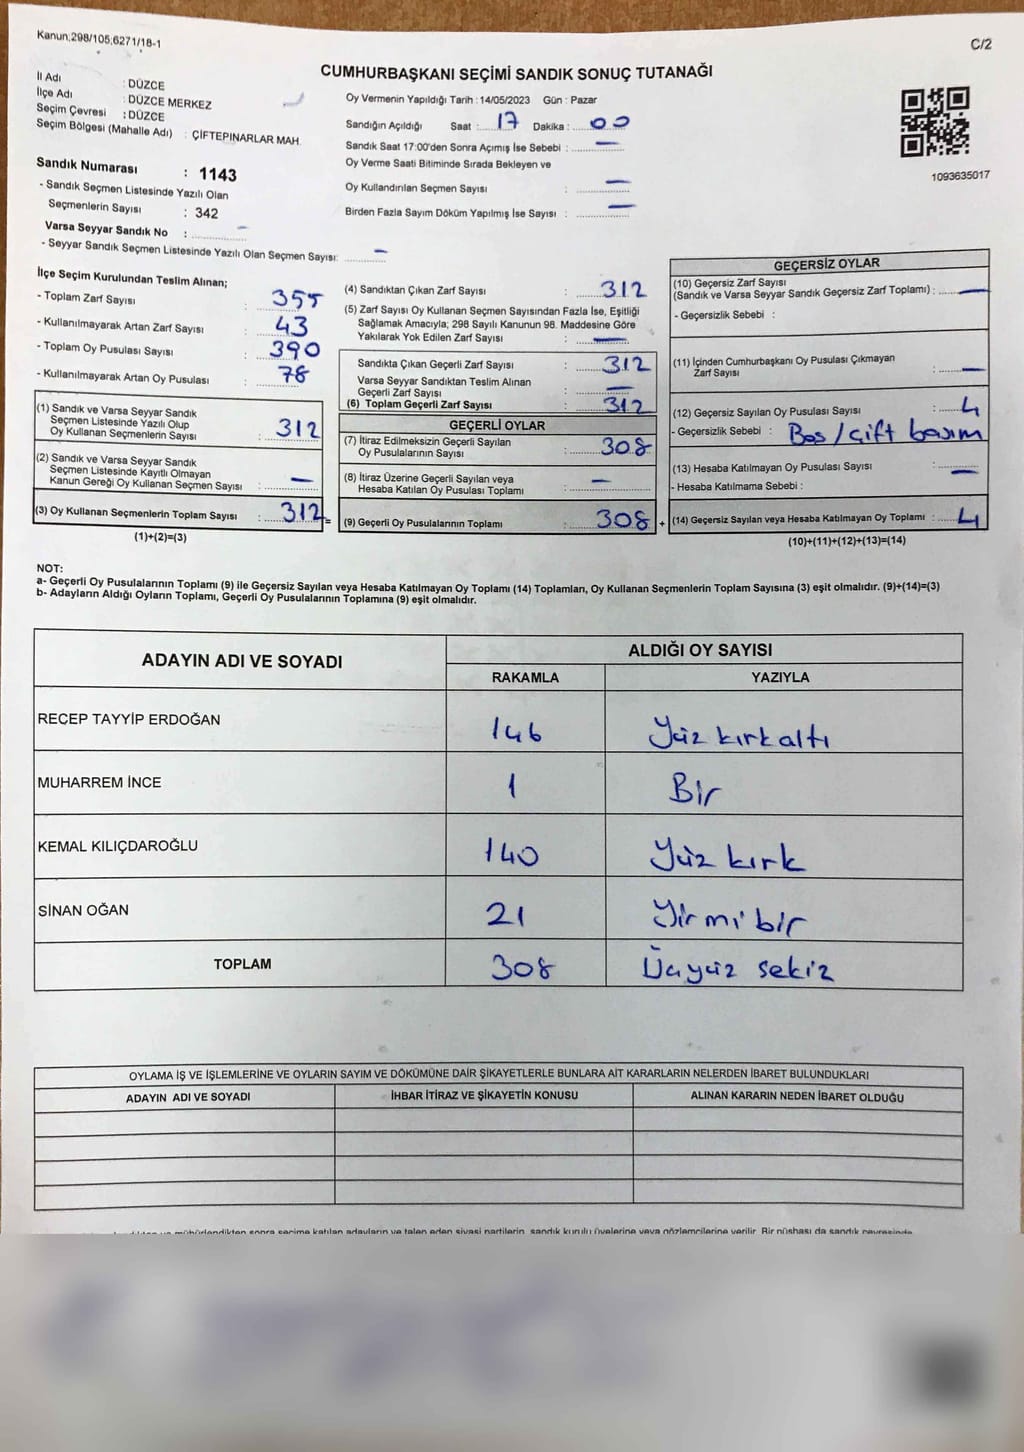 Kanun;298/105;6271/18-1
C/2
CUMHURBAŞKANI SEÇİMİ SANDIK SONUÇ TUTANAĞI
İl Adı : DÜZCE
İlçe Adı : DÜZCE MERKEZ
Seçim Çevresi : DÜZCE
Seçim Bölgesi (Mahalle Adı) : ÇİFTEPINARLAR MAH.
Sandık Numarası : 1143
- Sandık Seçmen Listesinde Yazılı Olan
Seçmenlerin Sayısı : 342
Varsa Seyyar Sandık No : –
- Seyyar Sandık Seçmen Listesinde Yazılı Olan Seçmen Sayısı: –
Oy Vermenin Yapıldığı Tarih : 14/05/2023 Gün : Pazar
Sandığın Açıldığı Saat : 17 Dakika : 00
Sandık Saat 17:00'den Sonra Açımış İse Sebebi : –
Oy Verme Saati Bitiminde Sırada Bekleyen ve
Oy Kullandırılan Seçmen Sayısı : –
Birden Fazla Sayım Döküm Yapılmış İse Sayısı : –
1093635017
İlçe Seçim Kurulundan Teslim Alınan;
- Toplam Zarf Sayısı : 355
- Kullanılmayarak Artan Zarf Sayısı : 43
- Toplam Oy Pusulası Sayısı : 390
- Kullanılmayarak Artan Oy Pusulası : 78
(1) Sandık ve Varsa Seyyar Sandık
Seçmen Listesinde Yazılı Olup
Oy Kullanan Seçmenlerin Sayısı : 312
(2) Sandık ve Varsa Seyyar Sandık
Seçmen Listesinde Kayıtlı Olmayan
Kanun Gereği Oy Kullanan Seçmen Sayısı : –
(3) Oy Kullanan Seçmenlerin Toplam Sayısı : 312 =
(1)+(2)=(3)
(4) Sandıktan Çıkan Zarf Sayısı : 312
(5) Zarf Sayısı Oy Kullanan Seçmen Sayısından Fazla İse, Eşitliği
Sağlamak Amacıyla; 298 Sayılı Kanunun 98. Maddesine Göre
Yakılarak Yok Edilen Zarf Sayısı : –
Sandıkta Çıkan Geçerli Zarf Sayısı : 312
Varsa Seyyar Sandıktan Teslim Alınan
Geçerli Zarf Sayısı : –
(6) Toplam Geçerli Zarf Sayısı : 312
GEÇERLİ OYLAR
(7) İtiraz Edilmeksizin Geçerli Sayılan
Oy Pusulalarının Sayısı : 308
(8) İtiraz Üzerine Geçerli Sayılan veya
Hesaba Katılan Oy Pusulası Toplamı : –
(9) Geçerli Oy Pusulalarının Toplamı : 308 +
GEÇERSİZ OYLAR
(10) Geçersiz Zarf Sayısı
(Sandık ve Varsa Seyyar Sandık Geçersiz Zarf Toplamı) : –
- Geçersizlik Sebebi :
(11) İçinden Cumhurbaşkanı Oy Pusulası Çıkmayan
Zarf Sayısı : –
(12) Geçersiz Sayılan Oy Pusulası Sayısı : 4
- Geçersizlik Sebebi : Boş/çift basım
(13) Hesaba Katılmayan Oy Pusulası Sayısı : –
- Hesaba Katılmama Sebebi :
(14) Geçersiz Sayılan veya Hesaba Katılmayan Oy Toplamı : 4
(10)+(11)+(12)+(13)=(14)
NOT:
a- Geçerli Oy Pusulalarının Toplamı (9) ile Geçersiz Sayılan veya Hesaba Katılmayan Oy Toplamı (14) Toplamları, Oy Kullanan Seçmenlerin Toplam Sayısına (3) eşit olmalıdır. (9)+(14)=(3)
b- Adayların Aldığı Oyların Toplamı, Geçerli Oy Pusulalarının Toplamına (9) eşit olmalıdır.
ADAYIN ADI VE SOYADI ALDIĞI OY SAYISI
RAKAMLA YAZIYLA
RECEP TAYYİP ERDOĞAN 146 Yüz kırk altı
MUHARREM İNCE 1 Bir
KEMAL KILIÇDAROĞLU 140 Yüz kırk
SİNAN OĞAN 21 Yirmi bir
TOPLAM 308 Üçyüz sekiz
OYLAMA İŞ VE İŞLEMLERİNE VE OYLARIN SAYIM VE DÖKÜMÜNE DAİR ŞİKAYETLERLE BUNLARA AİT KARARLARIN NELERDEN İBARET BULUNDUKLARI
ADAYIN ADI VE SOYADI İHBAR İTİRAZ VE ŞİKAYETİN KONUSU ALINAN KARARIN NEDEN İBARET OLDUĞU
mühürlendikten sonra seçime katılan adayların ve talep eden siyasi partilerin, sandık kurulu üyelerine veya gözlemcilerine verilir. Bir nüshası da sandık çevresinde